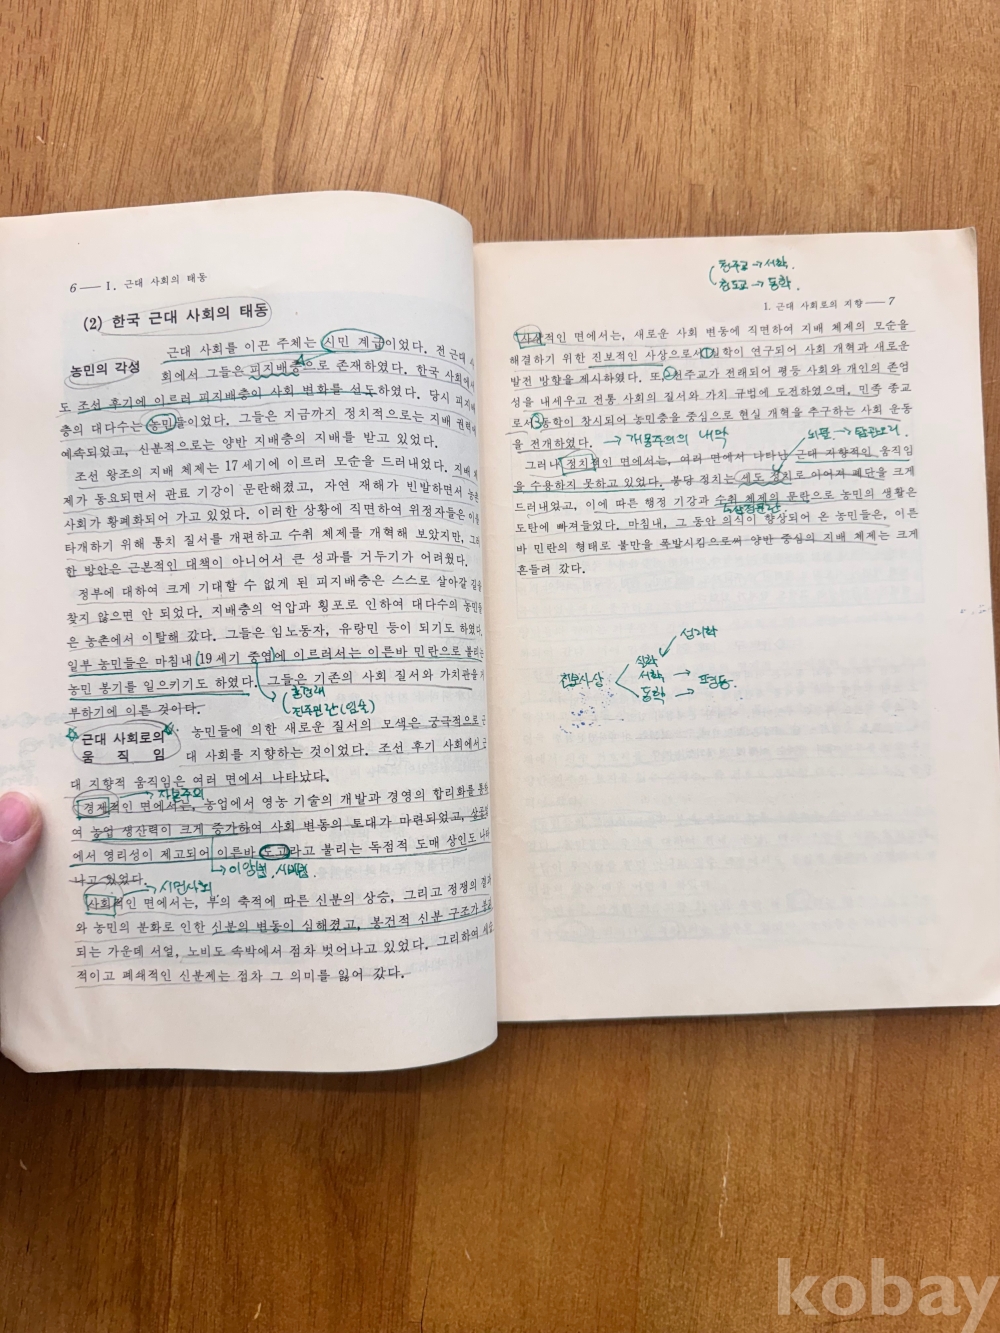 6 — I. 근대 사회의 태동
(2) 한국 근대 사회의 태동
농민의 각성
근대 사회를 이끈 주체는 시민 계급이었다. 전 근대 사
회에서 그들은 피지배층으로 존재하였다. 한국 사회에서
도 조선 후기에 이르러 피지배층의 사회 변화를 선도하였다. 당시 피지배
층의 대다수는 농민들이었다. 그들은 지금까지 정치적으로는 지배 권력에
예속되었고, 신분적으로는 양반 지배층의 지배를 받고 있었다.
조선 왕조의 지배 체제는 17세기에 이르러 모순을 드러내었다. 지배 체
제가 동요되면서 관료 기강이 문란해졌고, 자연 재해가 빈발하면서 농촌
사회가 황폐화되어 가고 있었다. 이러한 상황에 직면하여 위정자들은 이를
타개하기 위해 통치 질서를 개편하고 수취 체제를 개혁해 보았지만, 그러
한 방안은 근본적인 대책이 아니어서 큰 성과를 거두기가 어려웠다.
정부에 대하여 크게 기대할 수 없게 된 피지배층은 스스로 살아갈 길을
찾지 않으면 안 되었다. 지배층의 억압과 횡포로 인하여 대다수의 농민들
은 농촌에서 이탈해 갔다. 그들은 임노동자, 유랑민 등이 되기도 하였다.
일부 농민들은 마침내 (19세기 중엽)에 이르러서는 이른바 민란으로 불리는
농민 봉기를 일으키기도 하였다. 그들은 기존의 사회 질서와 가치관을 거
부하기에 이른 것이다.
홍경래
진주민란 (임술)
근대 사회로의
움 직 임
농민들에 의한 새로운 질서의 모색은 궁극적으로 근
대 사회를 지향하는 것이었다. 조선 후기 사회에서 근
대 지향적 움직임은 여러 면에서 나타났다.
자본주의
경제적인 면에서는, 농업에서 영농 기술의 개발과 경영의 합리화를 통하
여 농업 생산력이 크게 증가하여 사회 변동의 토대가 마련되었고, 상공업
에서 영리성이 제고되어 이른바 도고라고 불리는 독점적 도매 상인도 나타
나고 있었다.
이앙법.
시민사회
사회적인 면에서는, 부의 축적에 따른 신분의 상승, 그리고 정쟁의 결과
와 농민의 분화로 인한 신분의 변동이 심해졌고, 봉건적 신분 구조가 붕괴
되는 가운데 서얼, 노비도 속박에서 점차 벗어나고 있었다. 그리하여 세습
적이고 폐쇄적인 신분제는 점차 그 의미를 잃어 갔다.
천주교 → 서학.
천도교 → 동학.
I. 근대 사회로의 지향 — 7
사상적인 면에서는, 새로운 사회 변동에 직면하여 지배 체제의 모순을
해결하기 위한 진보적인 사상으로서 ① 실학이 연구되어 사회 개혁과 새로운
발전 방향을 제시하였다. 또, ② 천주교가 전래되어 평등 사회와 개인의 존엄
성을 내세우고 전통 사회의 질서와 가치 규범에 도전하였으며, 민족 종교
로서 ③ 동학이 창시되어 농민층을 중심으로 현실 개혁을 추구하는 사회 운동
을 전개하였다.
뇌물. → 탐관오리.
그러나 정치적인 면에서는, 여러 면에서 나타난 근대 지향적인 움직임
을 수용하지 못하고 있었다. 붕당 정치는 세도 정치로 이어져 폐단을 크게
드러내었고, 이에 따른 행정 기강과 수취 체제의 문란으로 농민의 생활은
삼정문란.
도탄에 빠져들었다. 마침내, 그 동안 의식이 향상되어 온 농민들은, 이른
바 민란의 형태로 불만을 폭발시킴으로써 양반 중심의 지배 체제는 크게
흔들려 갔다.
성리학
진보사상
실학
서학 → 평등.
동학 →
kobay